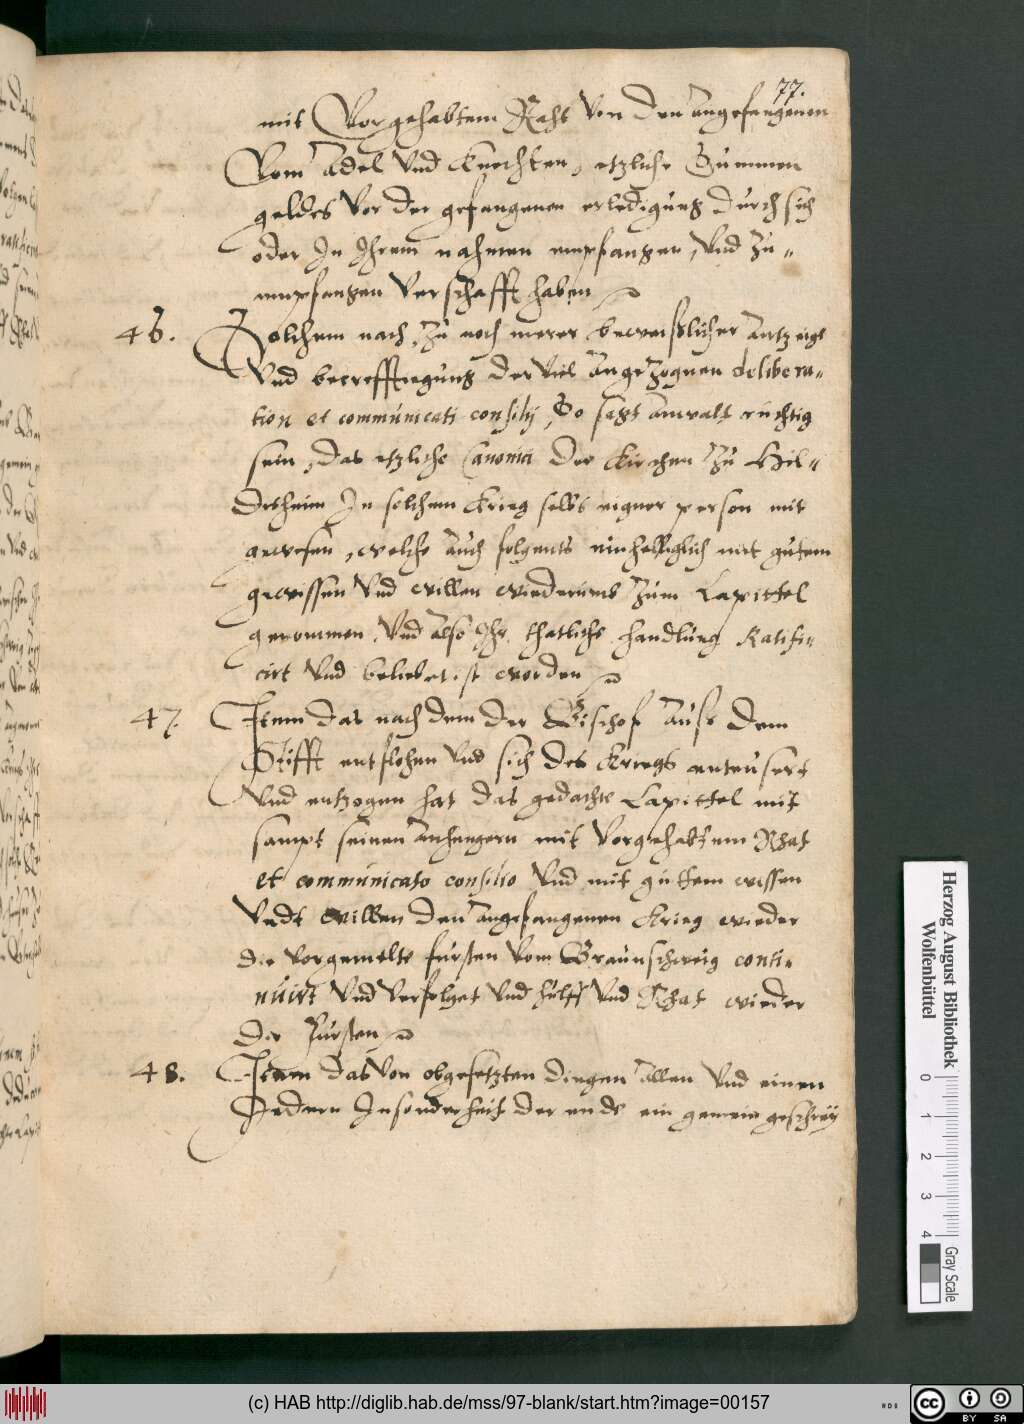 77.
mit Vorgehabtem Raht Von den angefangenen
Vom Adel Vnd Knechten, etzliche Summen
geldes Vor der gefangenen erledigung durch sich
oder In Ihrem nahmen empfangen, Vnd Zu„
empfangen Verschafft haben
46. Solchem nach, Zu noch merer beweißlicher antzeige
Vnd becrefftigung der Viel angezognen delibera„
tion et communicati consilij, So sagt anwalt
sein, das etzliche Canonici der Kirchen Zu Hil„
desheim In solchem Krieg selbs eigner person mit
gewesen, welche auch folgents einhelliglich mit gutem
gewissen Vnd willen wiederumb Zum Capittel
genommen Vnd also Ihr thatliche handlung Ratifi„
cirt Vnd beliebet ist worden
47. Item das nach dem der Bischof aufs dem
Stifft entflohen Vnd sich des Kriegs enteusert
Vnd entzogen hat das gedachte Capittel mit
sampt seinen anhengern mit Vorgehabtem Rhat
et communicato consilio Vnd mit guttem wissen
Vndt willen den angefangenen Krieg wieder
die vorgemelte fursten Vom Braunschweig conti„
nuirt Vnd Verfolget Vnd hulff Vnd Rhat wieder
die Fursten
48. Item das Von obgesetzten dingen allen Vnd einen
Jedern Insonderheit der ends ein gemein geschrey
Herzog August Bibliothek
Wolfenbüttel
0 1 2 3 4
Gray Scale
(c) HAB http://diglib.hab.de/mss/97-blank/start.htm?image=00157
cc BY SA